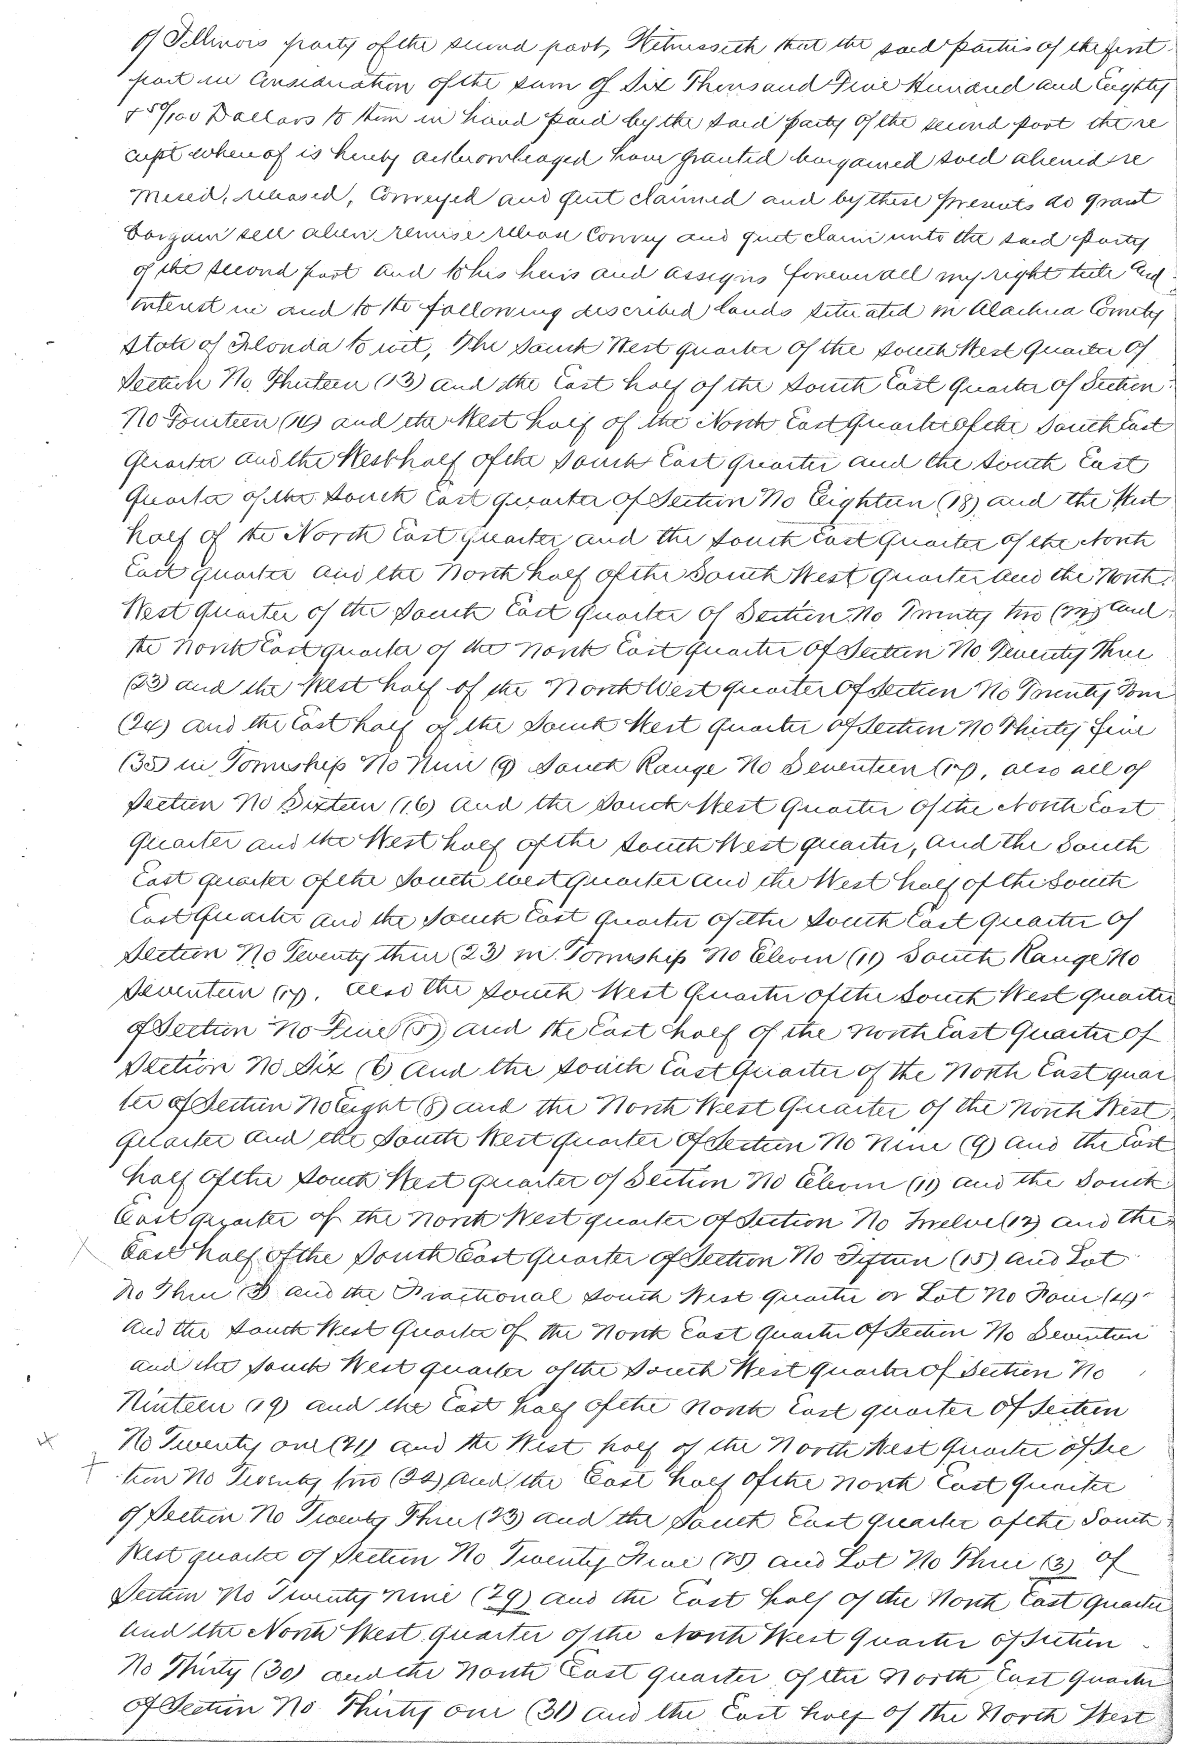 of Illinois party of the second part, Witnesseth that the said parties of the first
part in Consideration of the sum of Six Thousand Five Hundred and Eighty
& 50/100 Dollars to them in hand paid by the said party of the second part the re
ceipt whereof is hereby acknowledged have granted bargained sold aliened re
mised, released, Conveyed and quit claimed and by these presents do grant
bargain sell alien remise release Convey and quit claim unto the said party
of the second part and to his heirs and assigns forever all my right title and
interest in and to the following described lands situated in Alachua County
State of Florida to wit, The South West quarter of the South West Quarter of
Section No Thirteen (13) and the East half of the South East Quarter of Section
No Fourteen (14) and the West half of the North East Quarter of the South East
Quarter and the West half of the South East Quarter and the South East
Quarter of the South East quarter of Section No Eighteen (18) and the West
half of the North East quarter and the South East Quarter of the North
East quarter and the North half of the South West Quarter and the North
West Quarter of the South East Quarter of Section No Twenty two (22) and
the North East quarter of the North East Quarter of Section No Twenty Three
(23) and the West half of the North West quarter of Section No Twenty Four
(24) and the East half of the South West Quarter of Section No Thirty five
(35) in Township No Nine (9) South Range No Seventeen (17), also all of
Section No Sixteen (16) and the South West Quarter of the North East
Quarter and the West half of the South West quarter, and the South
East quarter of the South West Quarter and the West half of the South
East Quarter and the South East Quarter of the South East Quarter of
Section No Twenty three (23) in Township No Eleven (11) South Range No
Seventeen (17), also the South West Quarter of the South West quarter
of Section No Five (5) and the East half of the North East Quarter of
Section No Six (6) and the South East Quarter of the North East quar
ter of Section No Eight (8) and the North West Quarter of the North West
Quarter and the South West Quarter of Section No Nine (9) and the East
half of the South West quarter of Section No Eleven (11) and the South
East quarter of the North West quarter of Section No Twelve (12) and the
East half of the South East Quarter of Section No Fifteen (15) and Lot
No Three (3) and the Fractional South West Quarter or Lot No Four (4)
and the South West Quarter of the North East Quarter of Section No Seventeen
and the South West quarter of the South West Quarter of Section No
Ninteen (19) and the East half of the North East quarter of Section
No Twenty one (21) and the West half of the North West Quarter of Sec
tion No Twenty two (22) and the East half of the North East Quarter
of Section No Twenty Three (23) and the South East quarter of the South
West quarter of Section No Twenty Five (25) and Lot No Three (3) of
Section No Twenty nine (29) and the East half of the North East Quarter
and the North West quarter of the North West Quarter of Section
No Thirty (30) and the North East Quarter of the North East Quarter
of Section No Thirty one (31) and the East half of the North West